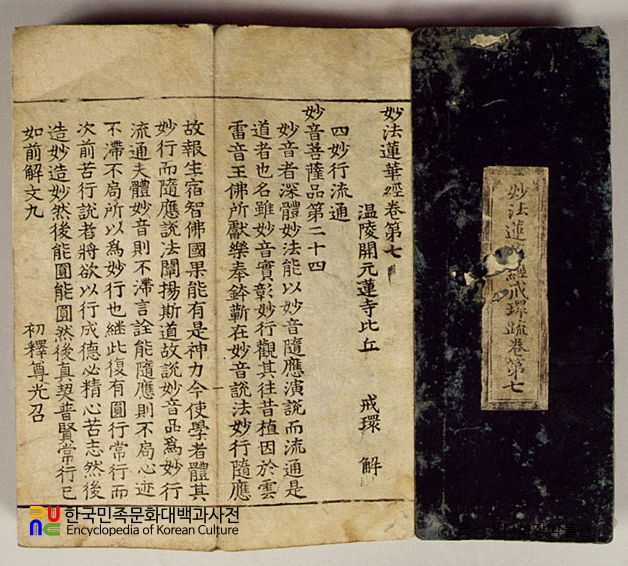 妙法蓮華經卷第七
溫陵開元蓮寺比丘 戒環 解
四妙行流通
妙音菩薩品第二十四
妙音者深體妙法能以妙音隨應演說而流通是
道者也名雖妙音實彰妙行觀其往昔植因於雲
雷音王佛所獻樂奉鉢蘄在妙音說法妙行隨應
故報生宿智佛國果能有是神力今使學者體其
妙行而隨應說法闡揚斯道故說妙音品爲妙行
流通夫體妙音則不滯言詮能隨應則不局心迹
不滯不局所以爲妙行也継此復有圓行常行而
次前苦行說者將欲以行成德必精心苦志然後
造妙造妙然後能圓能圓然後直契普賢常行已
如前解文九 初釋尊光召
妙法蓮 經戒環疏卷第七
한국민족문화대백과사전
Encyclopedia of Korean Culture